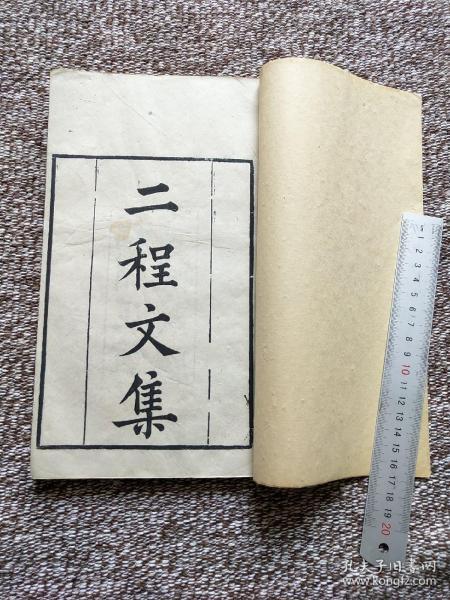 二程文集
1 2 3 4 5 6 7 8 9 10 11 12 13 14 15 16 17 18 19 20
孔夫子旧书网
www.kongfz.com